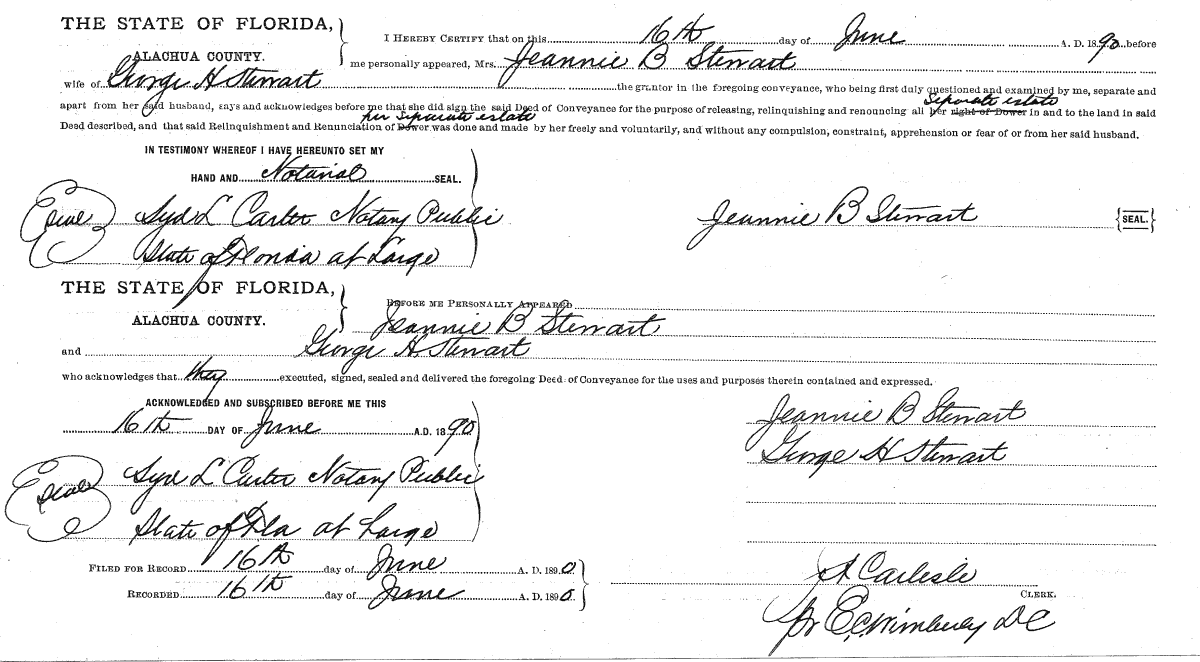 THE STATE OF FLORIDA,
ALACHUA COUNTY.
I HEREBY CERTIFY that on this 16th day of June A. D. 1890 before
me personally appeared, Mrs. Jeannie B Stewart
wife of George H Stewart the grantor in the foregoing conveyance, who being first duly questioned and examined by me, separate and
Separate estate
apart from her said husband, says and acknowledges before me that she did sign the said Deed of Conveyance for the purpose of releasing, relinquishing and renouncing all her right of Dower in and to the land in said
her Separate estate
Deed described, and that said Relinquishment and Renunciation of Dower was done and made by her freely and voluntarily, and without any compulsion, constraint, apprehension or fear of or from her said husband.
IN TESTIMONY WHEREOF I HAVE HEREUNTO SET MY
HAND AND Notarial SEAL.
Seal Syd L Carter Notary Public
State of Florida at Large
Jeannie B Stewart {SEAL.}
THE STATE OF FLORIDA,
ALACHUA COUNTY.
BEFORE ME PERSONALLY APPEARED
Jeannie B Stewart
and George H Stewart
who acknowledges that they executed, signed, sealed and delivered the foregoing Deed of Conveyance for the uses and purposes therein contained and expressed.
ACKNOWLEDGED AND SUBSCRIBED BEFORE ME THIS
16th DAY OF June A.D. 1890
Seal Syd L Carter Notary Public
State of Fla at Large
Jeannie B Stewart
George H Stewart
FILED FOR RECORD 16th day of June A. D. 1890
RECORDED 16th day of June A. D. 1890
Carlisle
CLERK.
pr E.C. Wimberly DC